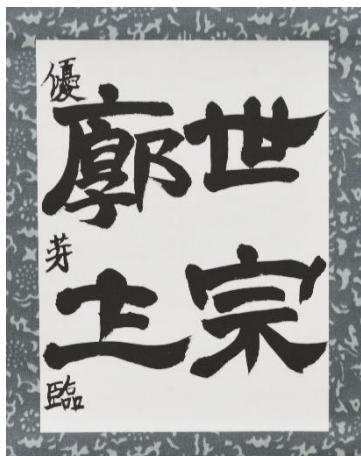 世宗
廓土
優芽臨